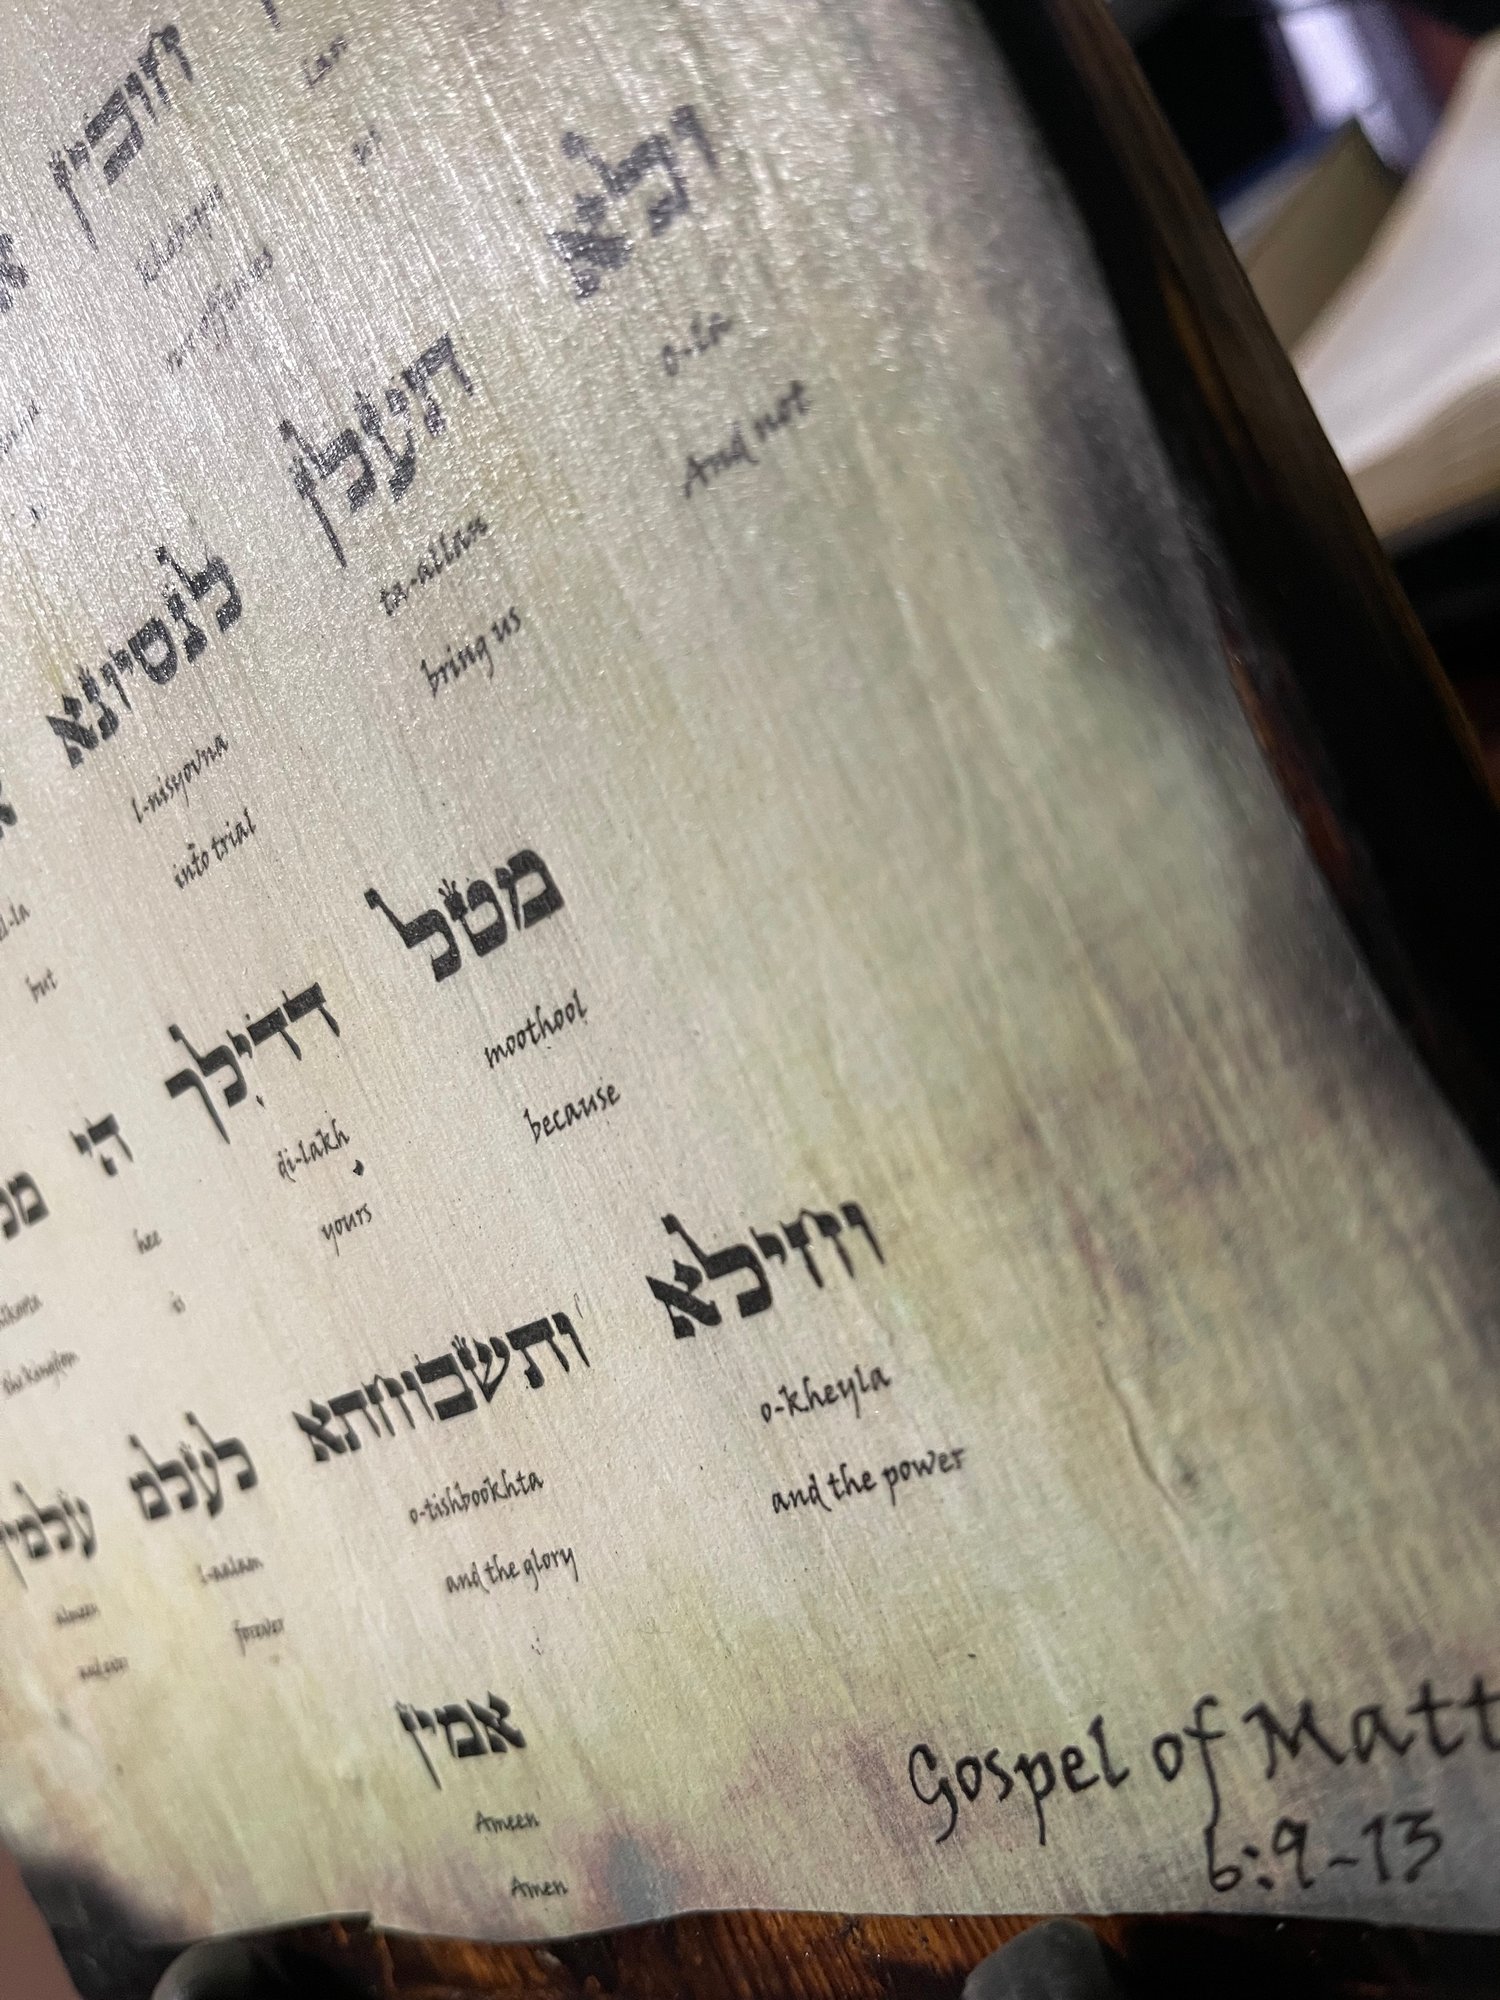 חובין
ולא תעלן לנסיונא
o-la ta-allan l-nisyovna
And not bring us into trial but
מטל דדילך הי
moothool di-lakh hee
because yours is
וחילא ותשבוחתא לעלם עלמין
o-kheyla o-tishbookhta l-aalam almeen
and the power and the glory forever
אמין
Ameen
Amen
Gospel of Matt
6:9-13